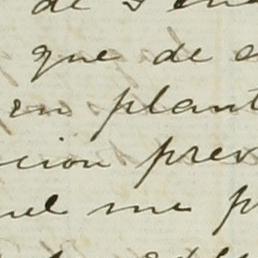 de
que de
en plant
cion prev
me p